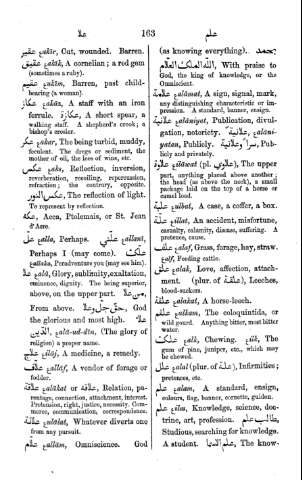 علا
163
علم
عقير ɛakūr, Cut, wounded. Barren.
عقيق ɛakīk, A cornelian; a red gem
(sometimes a ruby).
عقيم ɛakīm, Barren, past child-
bearing (a woman).
عكاز ɛakāz, A staff with an iron
ferrule. عكازه, A short spear, a
walking staff. A shepherd's crook; a
bishop's crosier.
عكر ɛaker, The being turbid, muddy,
feculent. The dregs or sediment, the
mother of oil, the lees of wine, etc.
عكس ɛaks, Reflection, inversion,
reverberation, recoiling, repercussion,
refraction; the contrary, opposite.
عكس النور, The reflection of light.
To represent by reflection.
عكه, Acca, Ptolemais, or St. Jean
d'Acre.
عل ɛalla, Perhaps. علني ɛallanī,
Perhaps I (may come). علك
ɛallaka, Peradventure you (may see him).
علا ɛalā, Glory, sublimity, exaltation,
eminence, dignity. The being superior,
above, on the upper part. من علا,
From above. حق جل وعلا, God
the glorious and most high. علا
الدين, ɛalā-ud-dīn, (The glory of
religion) a proper name.
علاج ɛilāj, A medicine, a remedy.
علاف ɛallāf, A vender of forage or
fodder.
علاقة ɛalākat or علاقه, Relation, pa-
rentage, connection, attachment, interest.
Pretension, right, justice, necessity. Com-
merce, communication, correspondence.
علالة ɛalālat, Whatever diverts one
from any pursuit.
علام ɛallām, Omniscience. God
(as knowing everything). بحمد
الله الملك العلام, With praise to
God, the king of knowledge, or the
Omniscient.
علامة ɛalāmat, A sign, signal, mark,
any distinguishing characteristic or im-
pression. A standard, banner, ensign.
علانية ɛalāniyat, Publication, divul-
gation, notoriety. علانية, ɛalāni-
yatan, Publicly. سرا وعلانية, Pub-
licly and privately.
علاوة ɛilāwat (pl. علاوي), The upper
part, anything placed above another;
the head (as above the neck), a small
package laid on the top of a horse or
camel load.
علبة ɛulbat, A case, a coffer, a box.
علة ɛillat, An accident, misfortune,
casualty, calamity, disease, suffering. A
pretence, cause.
علف ɛalf, Grass, forage, hay, straw.
ɛulf, Feeding cattle.
علق ɛalak, Love, affection, attach-
ment. (plur. of علقة), Leeches,
blood-suckers.
علقة ɛalakat, A horse-leech.
علقم ɛalkam, The coloquintida, or
wild gourd. Anything bitter, most bitter
water.
علك ɛalk, Chewing. ɛilk, The
gum of pine, juniper, etc., which may
be chewed.
علل ɛilal (plur. of علة), Infirmities;
pretences, etc.
علم ɛalam, A standard, ensign,
colours, flag, banner, cornette, guidon.
علم ɛilm, Knowledge, science, doc-
trine, art, profession. طالب علم,
Studious, searching for knowledge.
A student. علم الدنيا, The know-